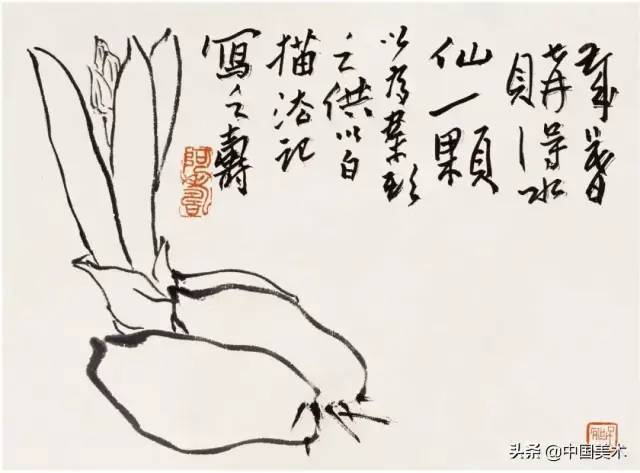 歲暮
購得水
仙一顆
以為案頭
之供以白
描法記
寫之壽
阿壽
头条 @中国美术